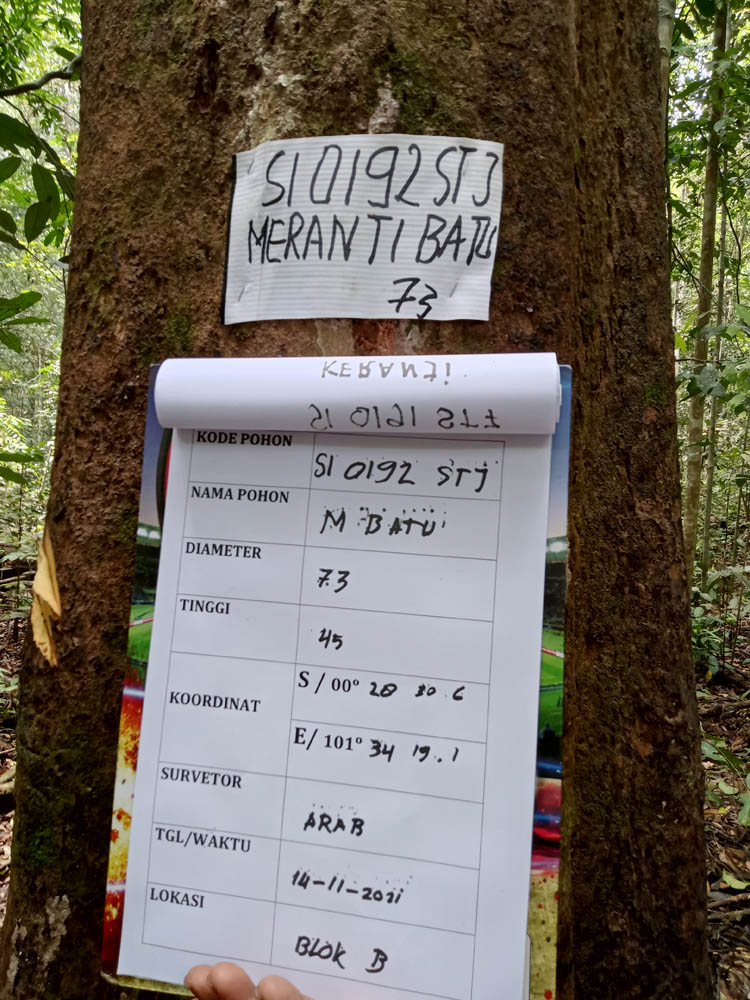 SI 0192 STJ
MERANTI BATU
73
KERANJI
SI 0191 STJ
KODE POHON SI 0192 STJ
NAMA POHON M BATU
DIAMETER 73
TINGGI 45
KOORDINAT S / 00° 28 30.6
E/ 101° 34 19.1
SURVETOR ARAB
TGL/WAKTU 14-11-2021
LOKASI BLOK B